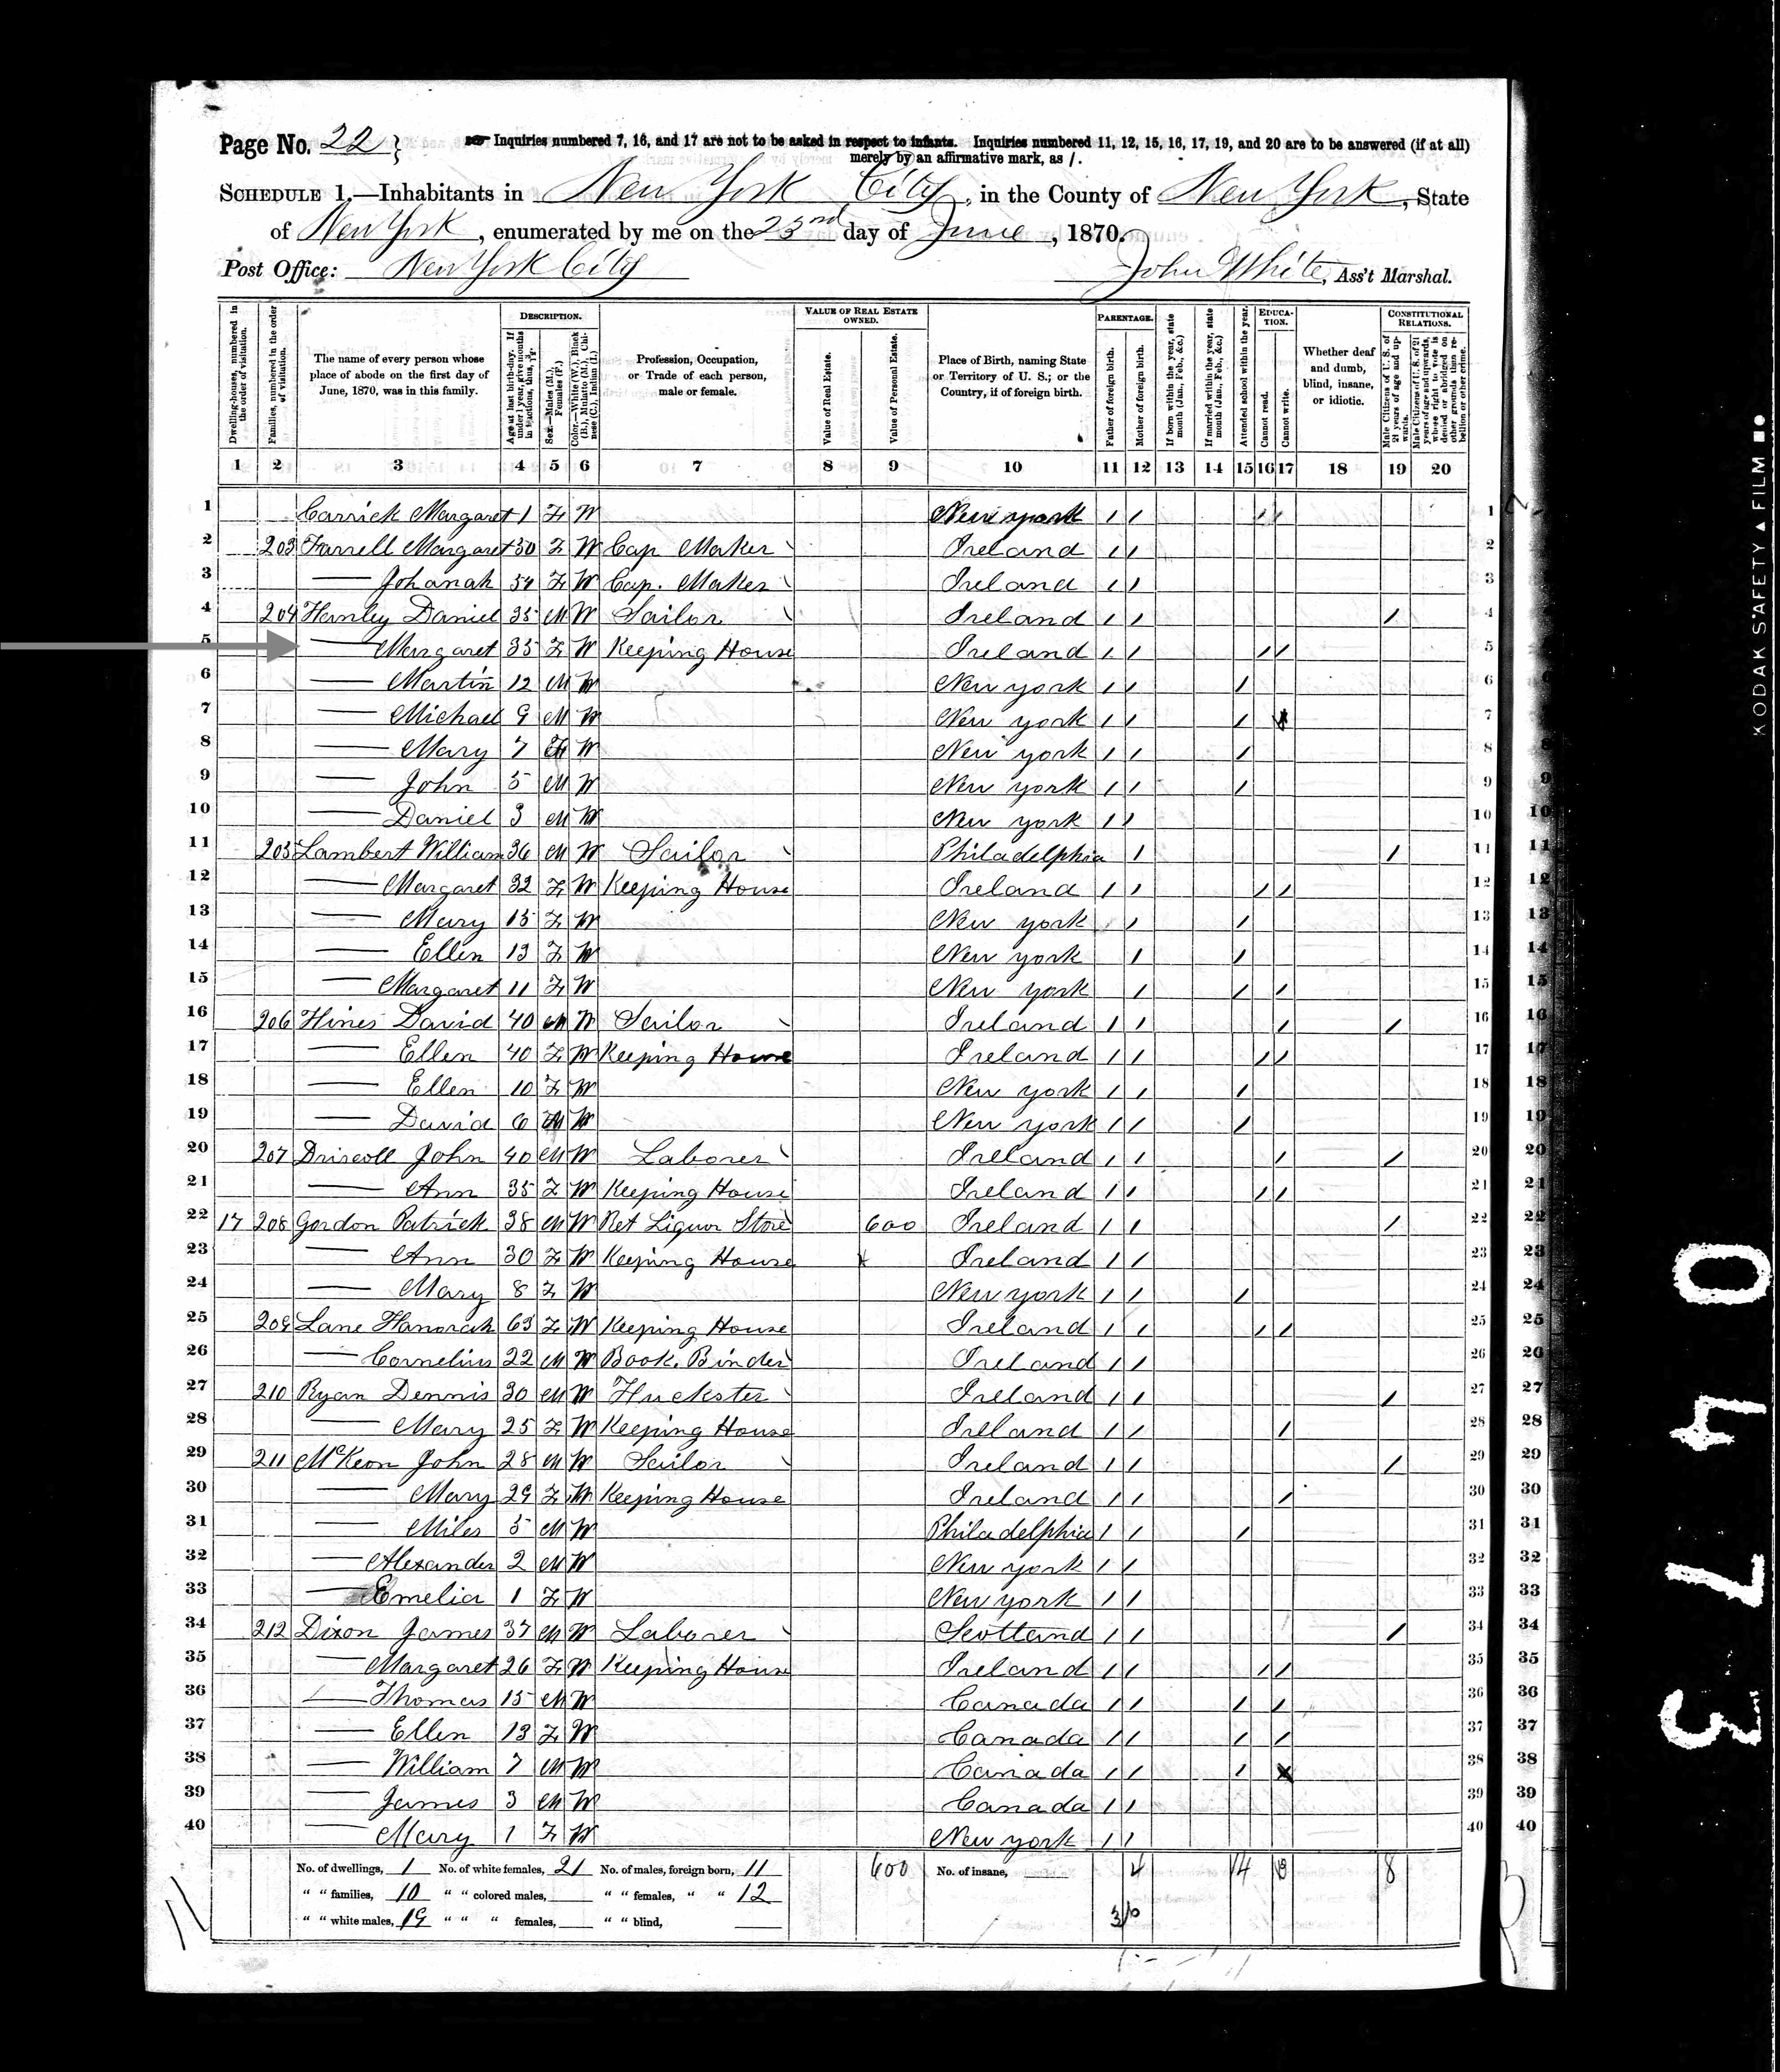 Page No. 22
Inquiries numbered 7, 16, and 17 are not to be asked in respect to infants. Inquiries numbered 11, 12, 15, 16, 17, 19, and 20 are to be answered (if at all)
merely by an affirmative mark, as /.
SCHEDULE 1.—Inhabitants in New York City, in the County of New York, State
of New York, enumerated by me on the 23rd day of June, 1870.
Post Office: New York City
John White, Ass't Marshal.
Dwelling-houses, numbered in the order of visitation.
Families, numbered in the order of visitation.
The name of every person whose place of abode on the first day of June, 1870, was in this family.
DESCRIPTION.
Age at last birth-day. If under 1 year, give months in fractions, thus,
Sex.—Males (M.), Females (F.)
Color.—White (W.), Black (B.), Mulatto (M.), Chinese (C.), Indian (I.)
Profession, Occupation, or Trade of each person, male or female.
VALUE OF REAL ESTATE OWNED.
Value of Real Estate.
Value of Personal Estate.
Place of Birth, naming State or Territory of U. S.; or the Country, if of foreign birth.
PARENTAGE.
Father of foreign birth.
Mother of foreign birth.
If born within the year, state month (Jan., Feb., &c.)
If married within the year, state month (Jan., Feb., &c.)
Attended school within the year.
EDUCATION.
Cannot read.
Cannot write.
Whether deaf and dumb, blind, insane, or idiotic.
CONSTITUTIONAL RELATIONS.
Male Citizens of U. S. of 21 years of age and upwards.
Male Citizens of U. S. of 21 years of age and upwards, whose right to vote is denied or abridged on other grounds than rebellion or other crime.
1 2 3 4 5 6 7 8 9 10 11 12 13 14 15 16 17 18 19 20
1 Carrick Margaret 1 F W New York / / / / 1
2 203 Farrell Margaret 50 F W Cap Maker Ireland / / 2
3 — Johanah 54 F W Cap. Maker Ireland / / 3
4 204 Hanley Daniel 35 M W Sailor Ireland / / / 4
5 — Margaret 35 F W Keeping House Ireland / / / / 5
6 — Martin 12 M W New York / / / 6
7 — Michael 9 M W New York / / / 7
8 — Mary 7 F W New York / / / 8
9 — John 5 M W New York / / / 9
10 — Daniel 3 M W New York / / 10
11 205 Lambert William 36 M W Sailor Philadelphia / / 11
12 — Margaret 32 F W Keeping House Ireland / / / / 12
13 — Mary 15 F W New York / / 13
14 — Ellen 13 F W New York / / 14
15 — Margaret 11 F W New York / / / 15
16 206 Hines David 40 M W Sailor Ireland / / / / 16
17 — Ellen 40 F W Keeping House Ireland / / / / 17
18 — Ellen 10 F W New York / / / 18
19 — David 6 M W New York / / / 19
20 207 Driscoll John 40 M W Laborer Ireland / / / / 20
21 — Ann 35 F W Keeping House Ireland / / / / 21
22 17 208 Gordon Patrick 38 M W Ret Liquor Store 600 Ireland / / / 22
23 — Ann 30 F W Keeping House Ireland / / 23
24 — Mary 8 F W New York / / / 24
25 209 Lane Hanorah 63 F W Keeping House Ireland / / / / 25
26 — Cornelius 22 M W Book. Binder Ireland / / 26
27 210 Ryan Dennis 30 M W Huckster Ireland / / / 27
28 — Mary 25 F W Keeping House Ireland / / / 28
29 211 McKeon John 28 M W Sailor Ireland / / / 29
30 — Mary 29 F W Keeping House Ireland / / / 30
31 — Miles 5 M W Philadelphia / / / 31
32 — Alexander 2 M W New York / / 32
33 — Emelia 1 F W New York / / 33
34 212 Dixon James 37 M W Laborer Scotland / / / 34
35 — Margaret 26 F W Keeping House Ireland / / / / 35
36 — Thomas 15 M W Canada / / / / 36
37 — Ellen 13 F W Canada / / / / 37
38 — William 7 M W Canada / / / 38
39 — James 3 M W Canada / / 39
40 — Mary 1 F W New York / / 40
No. of dwellings, 1 No. of white females, 21 No. of males, foreign born, 11 600 No. of insane, 14 8
" " families, 10 " " colored males, " " females, " " 12
" " white males, 19 " " " females, " " blind,
KODAK SAFETY FILM
0473